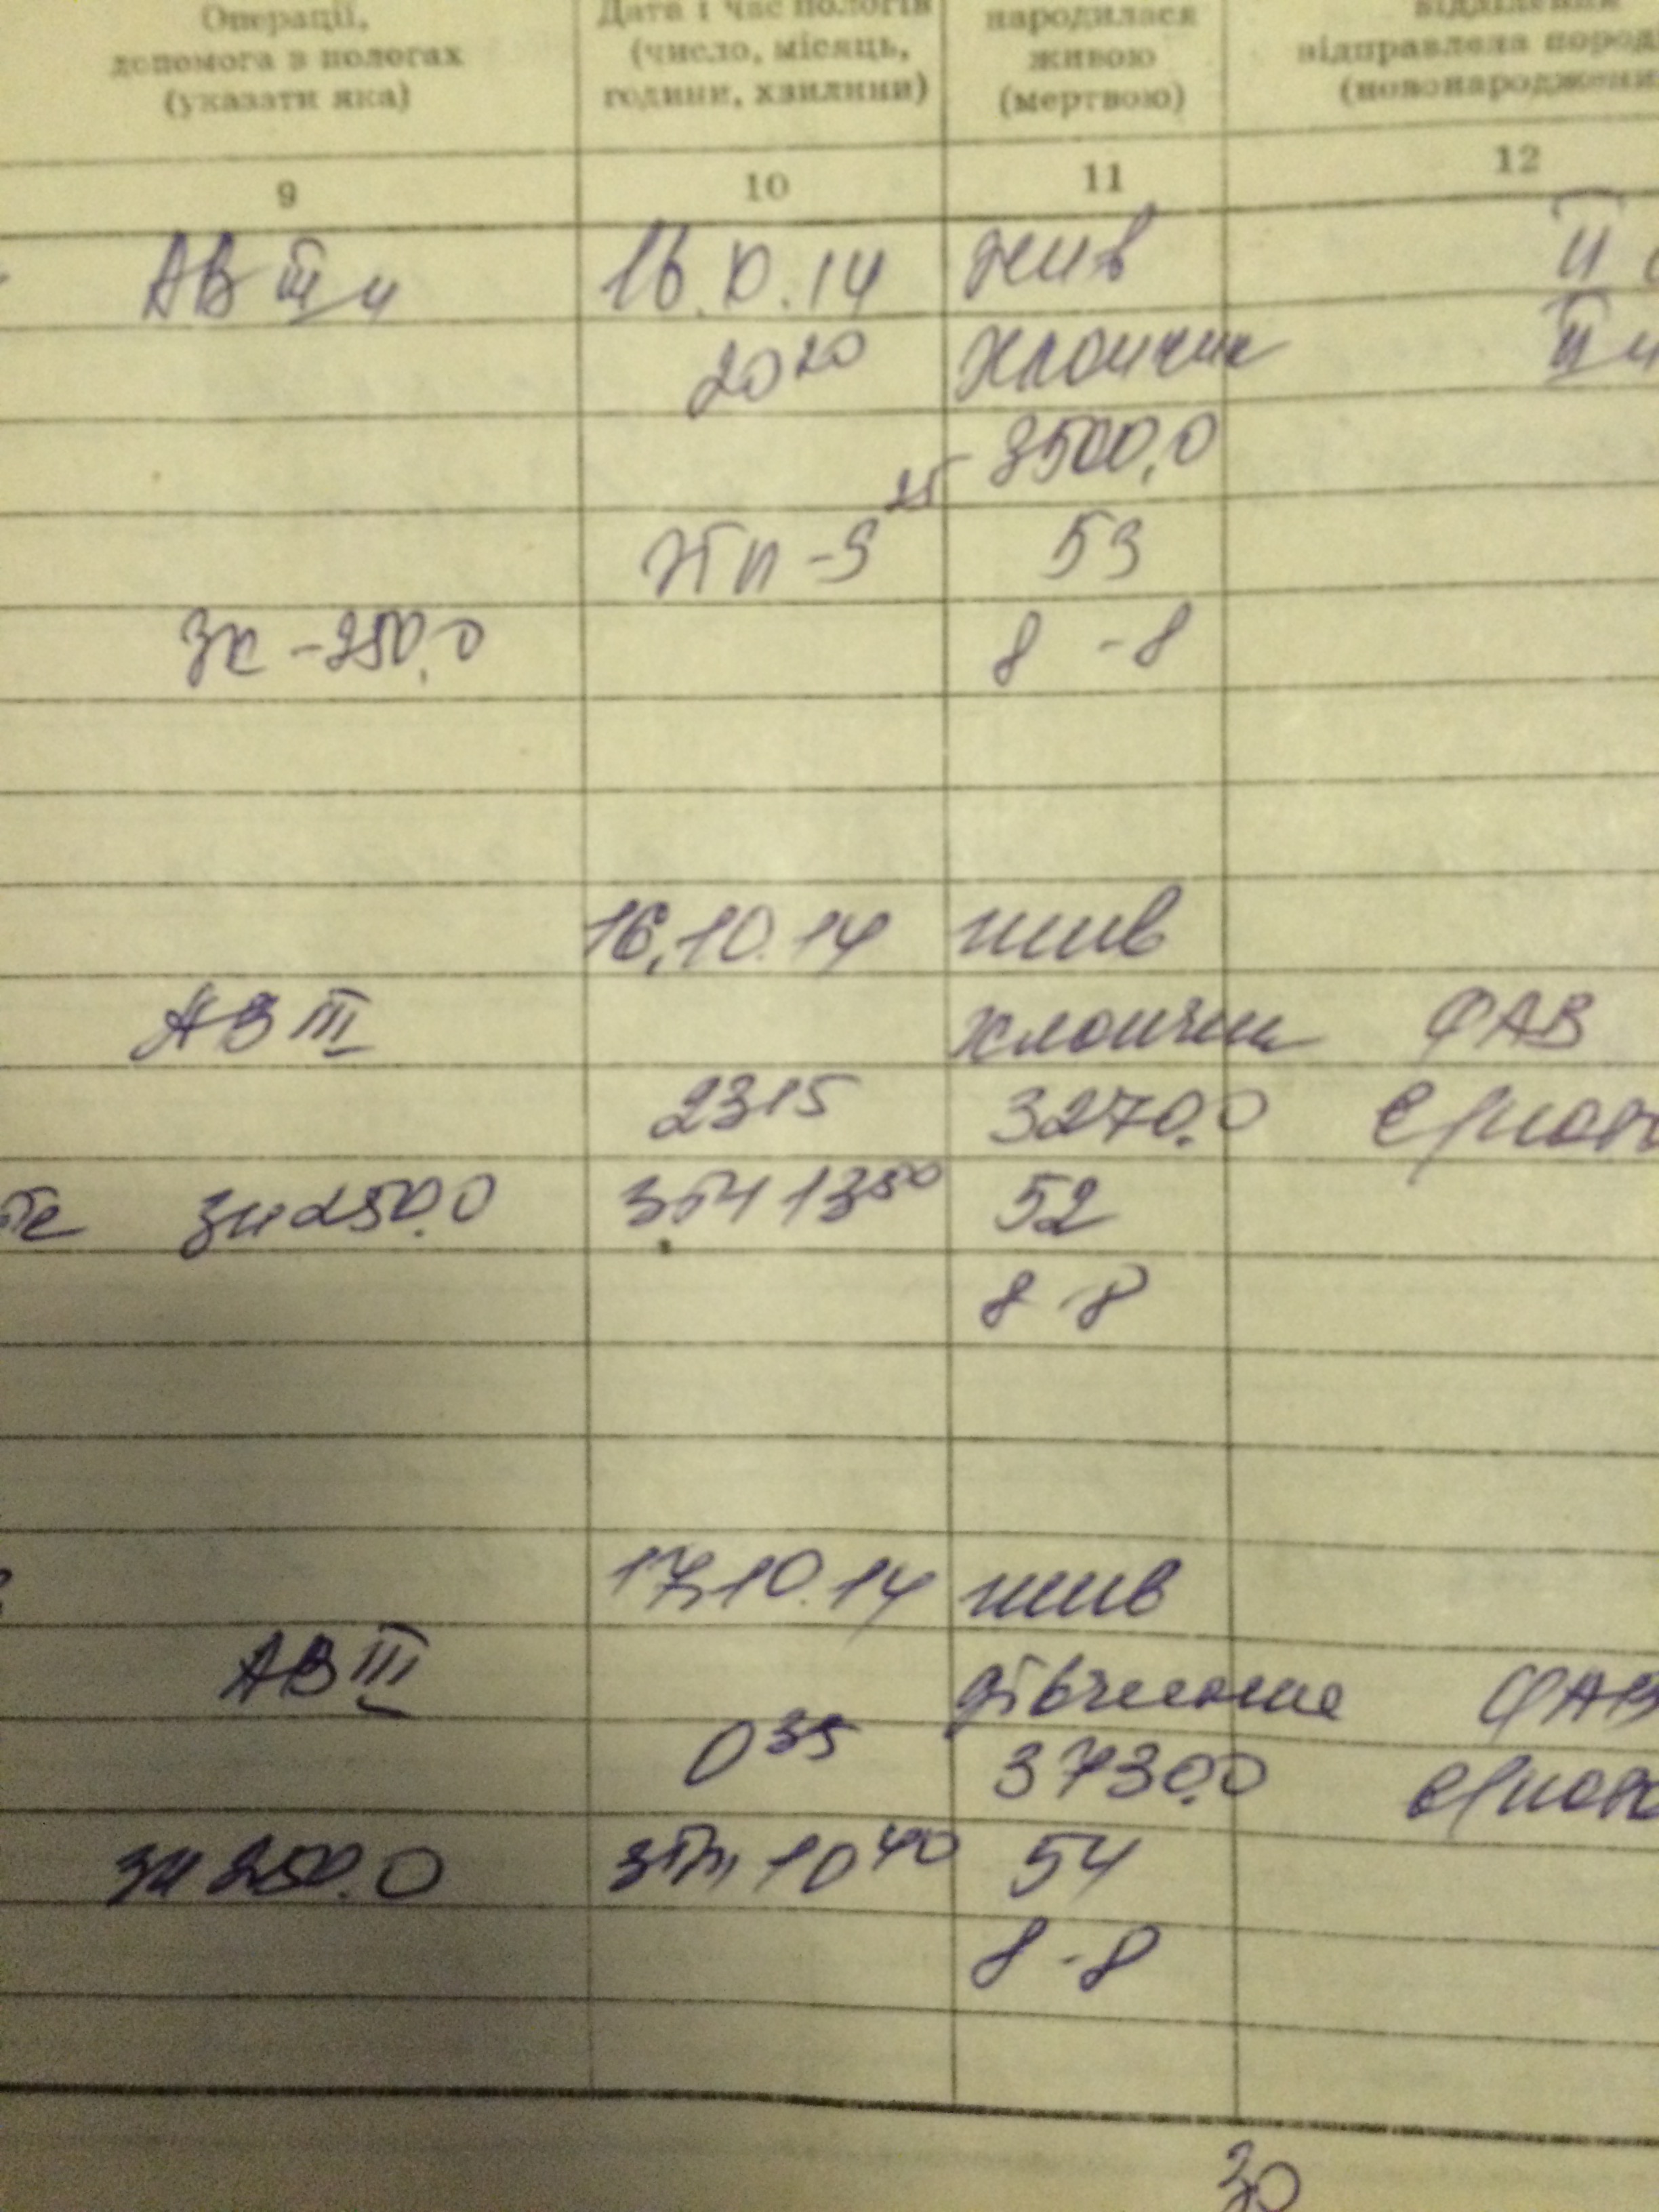 Операції,
допомога в пологах
(указати яка)
Дата і час пологів
(число, місяць,
години, хвилини)
народилася
живою
(мертвою)
відділення
відправлена
9
10
11
12
АВ III
16.10.14
жив
II
20 20
хлопчик
3500,0
25
53
250,0
8 - 8
16.10.14
жив
АВ III
хлопчик
ФАВ
23 15
3270.0
250.0
13 50
52
8 - 8
17.10.14
жив
АВ III
дівчинка
ФАВ
0 35
3730.0
250.0
10 40
54
8 - 8
30